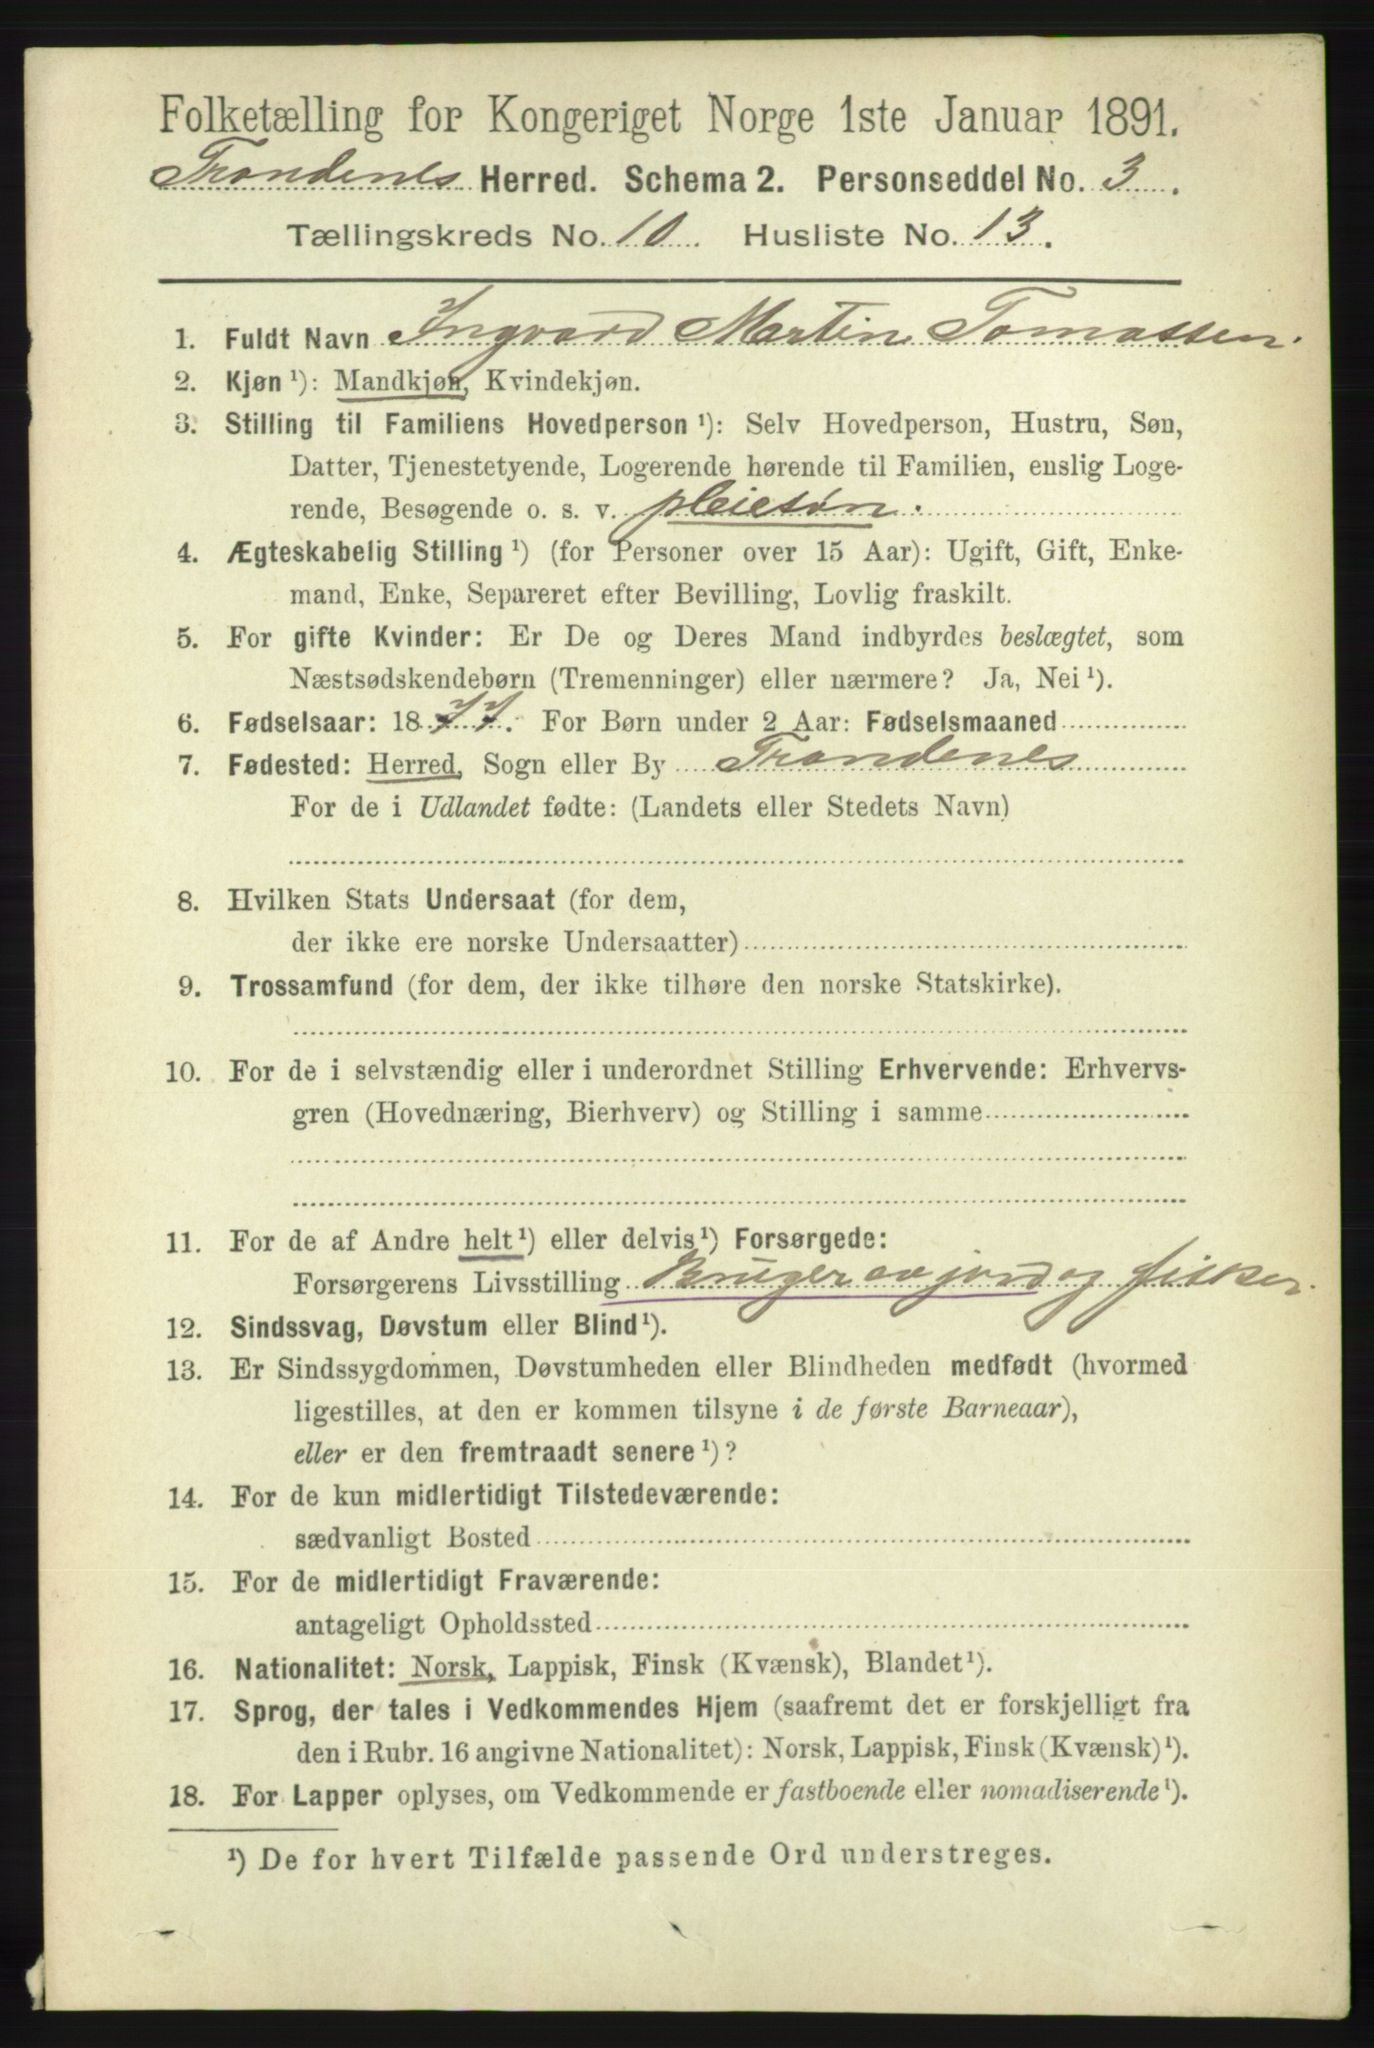 Folketælling for Kongeriget Norge 1ste Januar 1891.
Trondenes Herred. Schema 2. Personseddel No. 3.
Tællingskreds No. 10. Husliste No. 13.
1. Fuldt Navn Ingvard Martin Tomassen.
2. Kjøn ¹): Mandkjøn, Kvindekjøn.
3. Stilling til Familiens Hovedperson ¹): Selv Hovedperson, Hustru, Søn,
Datter, Tjenestetyende, Logerende hørende til Familien, enslig Loge-
rende, Besøgende o. s. v. pleiesøn.
4. Ægteskabelig Stilling ¹) (for Personer over 15 Aar): Ugift, Gift, Enke-
mand, Enke, Separeret efter Bevilling, Lovlig fraskilt.
5. For gifte Kvinder: Er De og Deres Mand indbyrdes beslægtet, som
Næstsødskendebørn (Tremenninger) eller nærmere? Ja, Nei ¹).
6. Fødselsaar: 1877. For Børn under 2 Aar: Fødselsmaaned
7. Fødested: Herred, Sogn eller By Trondenes
For de i Udlandet fødte: (Landets eller Stedets Navn)
8. Hvilken Stats Undersaat (for dem,
der ikke ere norske Undersaatter)
9. Trossamfund (for dem, der ikke tilhøre den norske Statskirke).
10. For de i selvstændig eller i underordnet Stilling Erhvervende: Erhvervs-
gren (Hovednæring, Bierhverv) og Stilling i samme
11. For de af Andre helt ¹) eller delvis ¹) Forsørgede:
Forsørgerens Livsstilling Bruger av jord og fisker.
12. Sindssvag, Døvstum eller Blind ¹).
13. Er Sindssygdommen, Døvstumheden eller Blindheden medfødt (hvormed
ligestilles, at den er kommen tilsyne i de første Barneaar),
eller er den fremtraadt senere ¹)?
14. For de kun midlertidigt Tilstedeværende:
sædvanligt Bosted
15. For de midlertidigt Fraværende:
antageligt Opholdssted
16. Nationalitet: Norsk, Lappisk, Finsk (Kvænsk), Blandet ¹).
17. Sprog, der tales i Vedkommendes Hjem (saafremt det er forskjelligt fra
den i Rubr. 16 angivne Nationalitet): Norsk, Lappisk, Finsk (Kvænsk) ¹).
18. For Lapper oplyses, om Vedkommende er fastboende eller nomadiserende ¹).
¹) De for hvert Tilfælde passende Ord understreges.